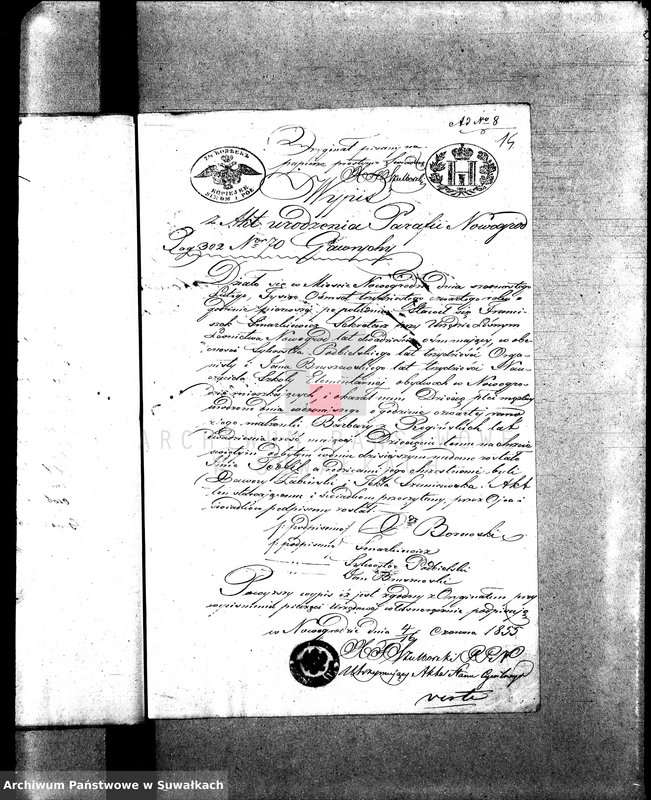 Ad No 8
15
Oryginał pisany na
papierze prostego
7½ KOPIEJKI
KOPIEJEK
Wypis
z Akt urodzenia Parafii Nowogrod
Pag 302 Nro 70 Gawrychy
Działo się w Mieście Nowogrodzie Dnia
Lutego, Tysiąc Ośmset trzydziestego czwartego roku o
godzinie pierwszej po południu Stawił się Franci-
szek Smarkiewicz Sekretarz przy Urzędzie Leśnym
Leśnictwa Nowogrod lat dwadzieścia ośm mający w obe-
cności Sylwestra Podbielskiego lat trzydzieści Orga-
nisty i Jana lat trzydzieści Nau-
czyciela Szkoły Elementarnej obydwóch w Nowogro-
dzie mieszkających i okazał nam Dziecię płci męskiej
urodzone dnia wczorajszego o godzinie czwartej rano
z jego małżonki Barbary z lat
dwadzieścia sześć mającej Dziecięciu temu na chrzcie
świętym odbytym w dniu dzisiejszym nadano zostało
Imie Józef, a rodzicami jego chrzestnemi byli
i Akt
ten stawającemu i świadkom przeczytany, przez Ojca i
świadków podpisany został.
/ podpisano / Borowski
/ podpisano / Smarkiewicz
Sylwester Podbielski
Jan
Powyższy wypis iż jest zgodny z Oryginałem przy
wyciśnieniu pieczęci Urzędowej własnoręcznie podpisuję
w Nowogrodzie dnia 4/16 Czerwca 1855
Utrzymujący Akta Stanu Cywilnego
verte
ARCHIWUM PAŃSTWOWE
Archiwum Państwowe w Suwałkach